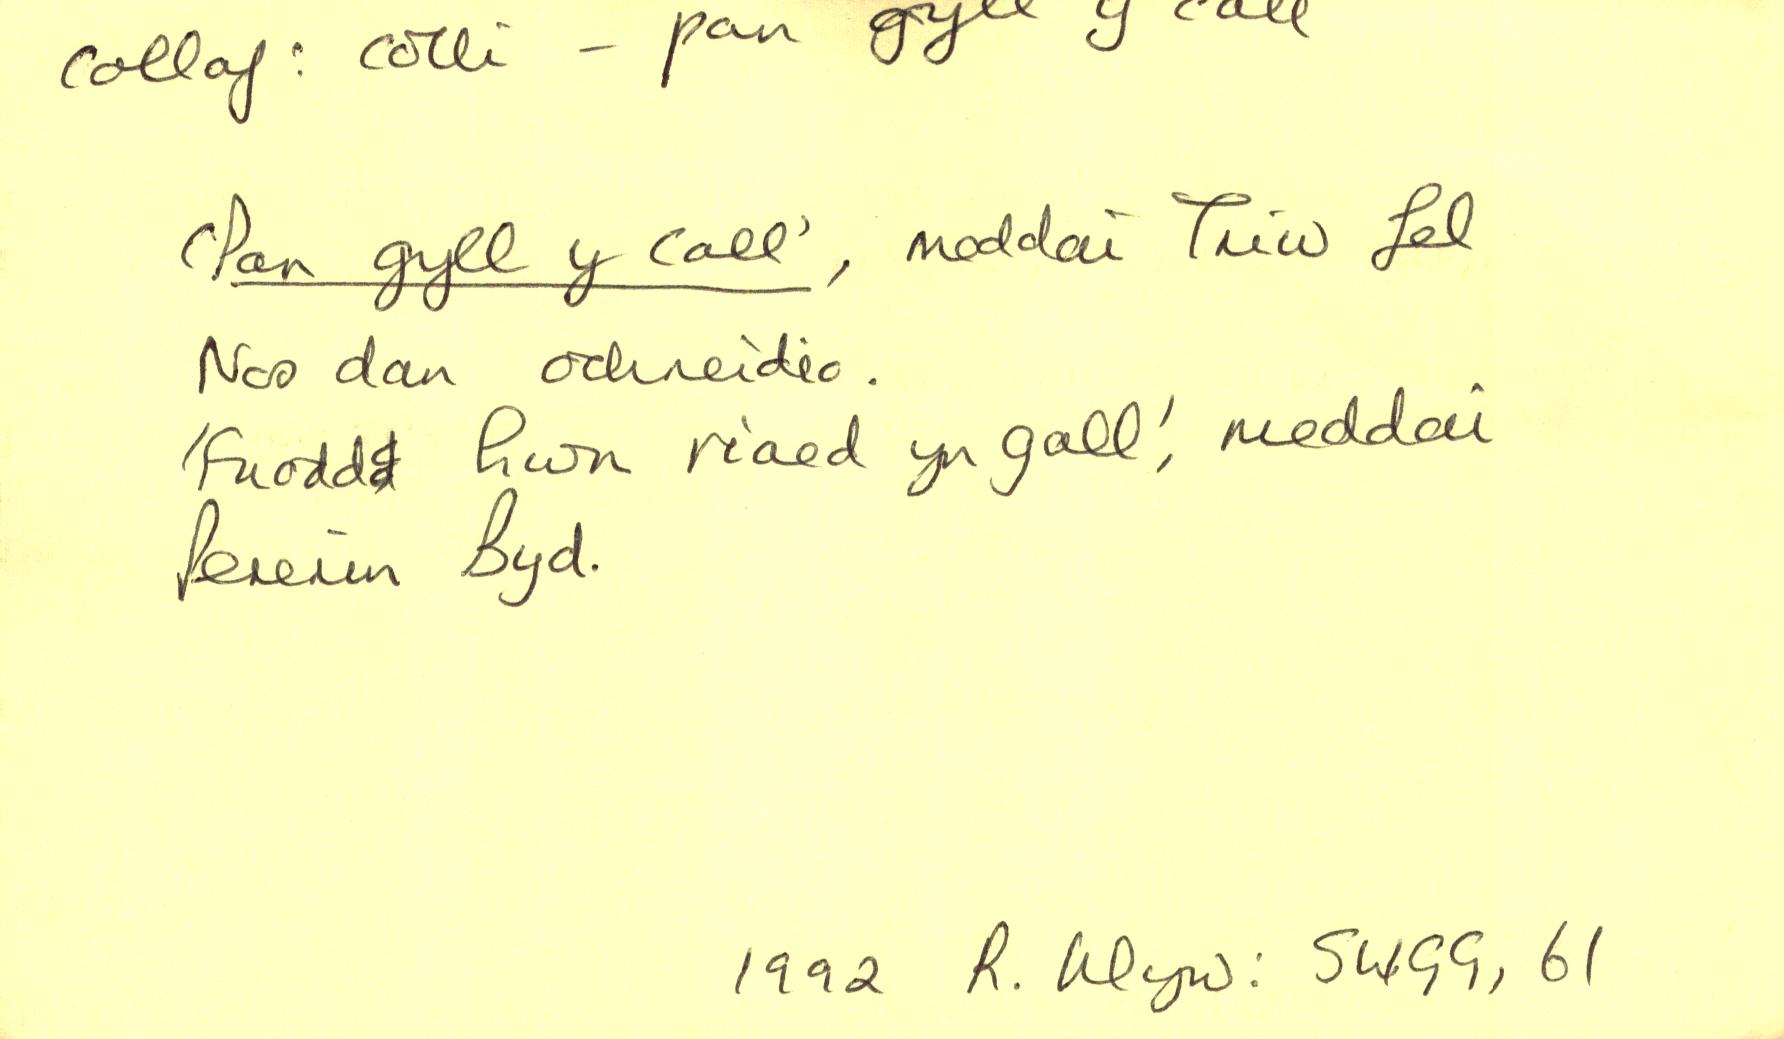 collaf: colli - pan gyll y call
'Pan gyll y call', meddai Triw fel
Nos dan ochneidio.
'Fuodd hwn riaed yn gall', meddai
Pererin Byd.
1992 R. Alyw: SWGG, 61